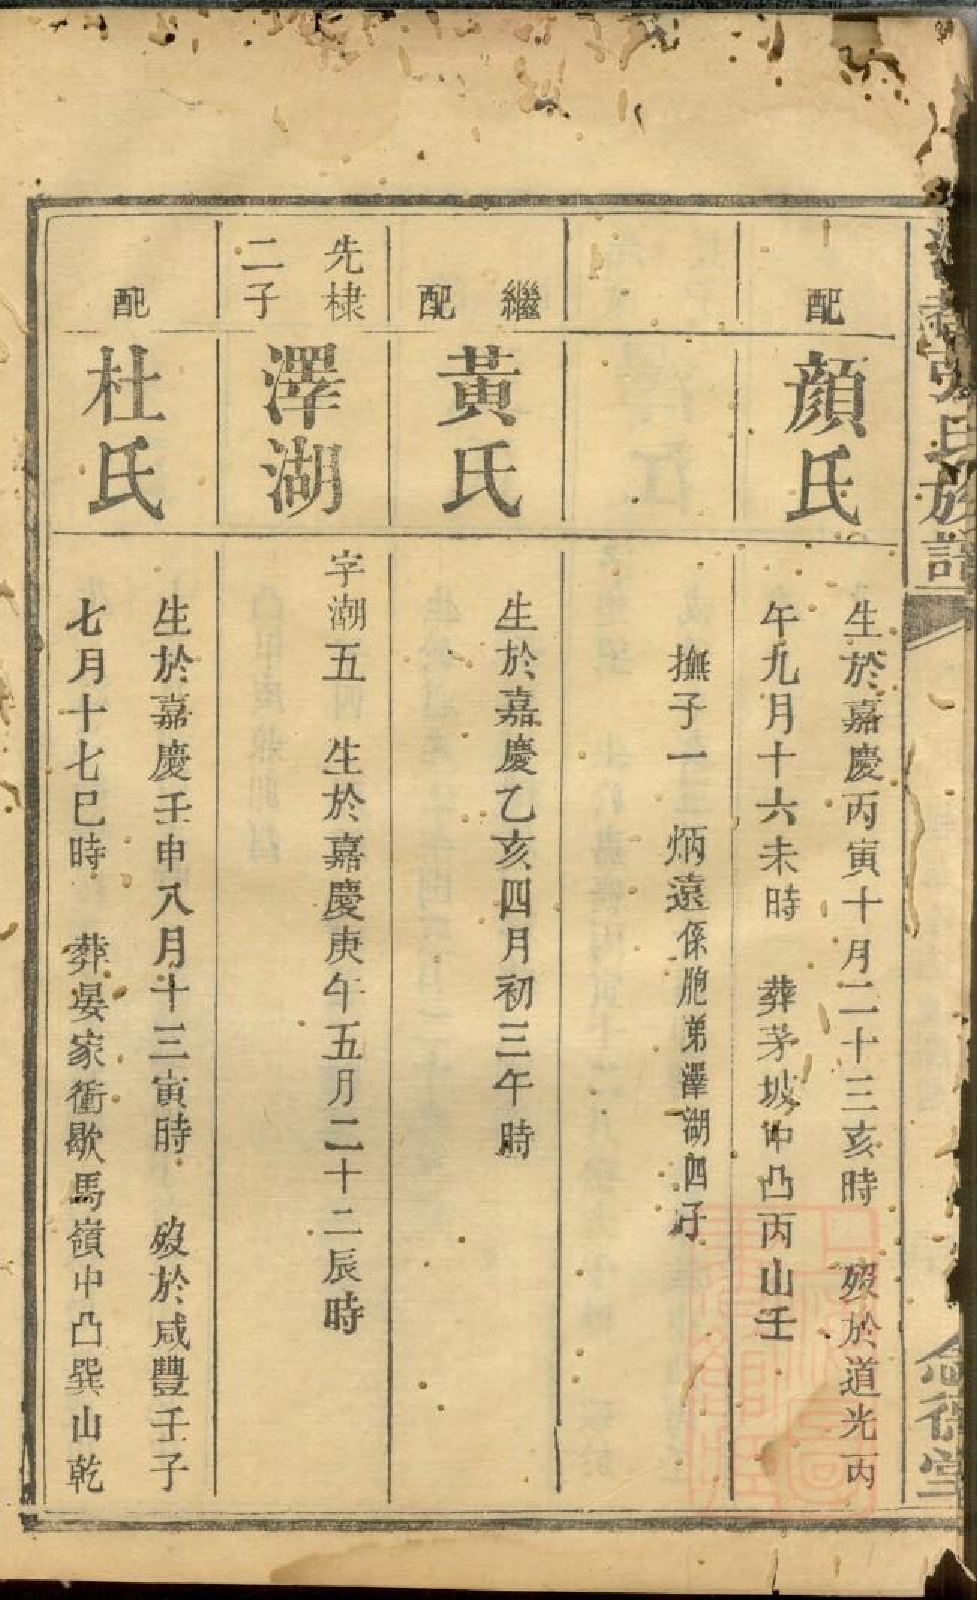 張氏族譜
念德堂
配
顏氏
生於嘉慶丙寅十月二十三亥時 歿於道光丙
午九月十六未時 葬茅坡冲凸丙山壬
撫子一 炳遠係胞弟澤湖四子
繼配
黃氏
生於嘉慶乙亥四月初三午時
先棣
二子
澤湖
字潮五 生於嘉慶庚午五月二十二辰時
配
杜氏
生於嘉慶壬申八月十三寅時 歿於咸豐壬子
七月十七巳時 葬晏家衝歇馬嶺中凸巽山乾